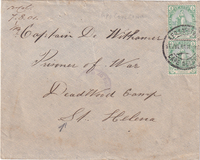 7.3.01
Captain De Withamer
Prisoner of War
Deadwood Camp
St. Helena